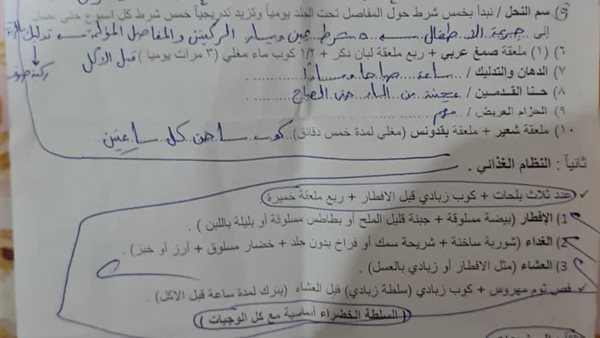 ٥) سم النحل / نبدأ بخمس شرط حول المفاصل تحت الجلد يومياً وتزيد تدريجياً خمس شرط كل اسبوع حتى نصل
إلى جرعة الاطفال ٥ شرط يمين ويسار الركبتين والمفاصل المؤلمة
٦) (١) ملعقة صمغ عربي + ربع ملعقة لبان دكر + ١/٢ كوب ماء مغلي (٣ مرات يوميا) قبل الأكل
٧) الدهان والتدليك / ساعة صباحا ومساءا
٨) حنا القدمين / عجينة من الماء حتى الصباح
٩) الحزام العريض / مهم
١٠) ملعقة شعير + ملعقة بقدونس (مغلي لمدة خمس دقائق) كوب ساخن كل ساعتين
ثانياً : النظام الغذائي .
عدد ثلاث بلحات + كوب زبادي قبل الافطار + ربع ملعقة خميرة
1) الإفطار (بيضة مسلوقة + جبنة قليل الملح أو بطاطس مسلوقة أو بليلة باللبن ) .
2) الغداء (شوربة ساخنة + شريحة سمك أو فراخ بدون جلد + خضار مسلوق + أرز أو خبز) .
3) العشاء (مثل الافطار أو زبادي بالعسل) .
✓ فص ثوم مهروس + كوب زبادي (سلطة زبادي) قبل العشاء (يترك لمدة ساعة قبل الاكل) .
( السلطة الخضراء أساسية مع كل الوجبات )